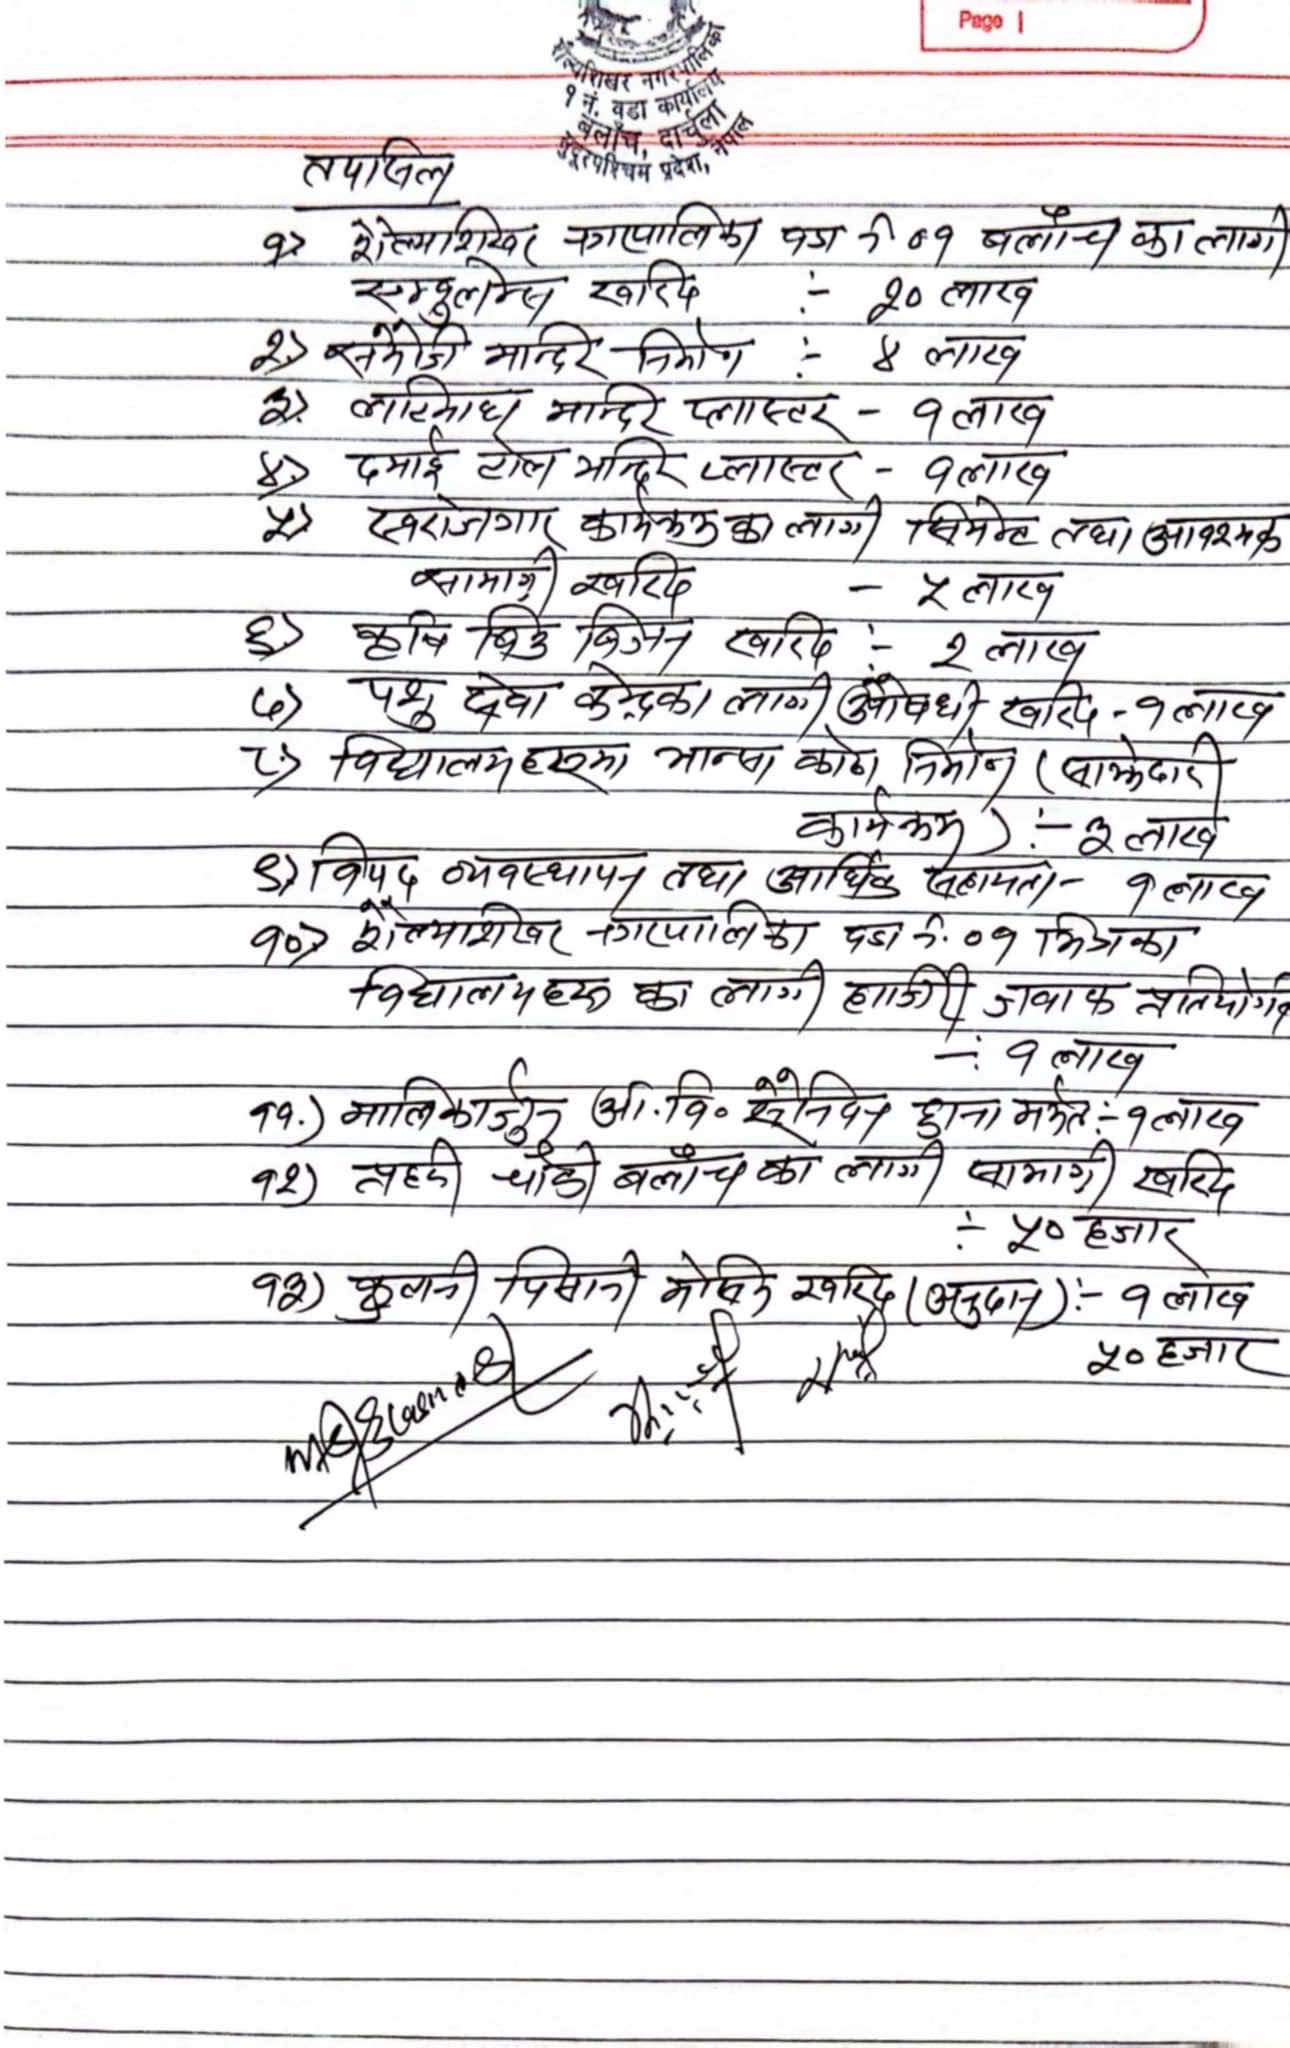 Page 1
शैल्यशिखर नगरपालिका
१ नं. वडा कार्यालय
बलाँच, दार्चुला
सुदूरपश्चिम प्रदेश, नेपाल
तपसिल
१) शैल्यशिखर नगरपालिका वडा नं ०१ बलाँच का लागी
एम्बुलेन्स खरिद :- २० लाख
२) मन्दिर निर्माण :- ४ लाख
३) मन्दिर प्लास्टर - १ लाख
४) दमाई टोल मन्दिर प्लास्टर - १ लाख
५) स्वरोजगार कार्यक्रम का लागी सिमेन्ट तथा आवश्यक
सामाग्री खरिद - ५ लाख
६) कृषि बिउ बिजन खरिद :- २ लाख
७) पशु सेवा केन्द्रका लागी औषधी खरिद - १ लाख
८) विद्यालयहरुमा भान्सा कोठा निर्माण (साझेदारी
कार्यक्रम) :- ३ लाख
९) विपद व्यवस्थापन तथा आर्थिक सहायता - १ लाख
१०) शैल्यशिखर नगरपालिका वडा नं. ०१ भित्रका
विद्यालयहरु का लागी हाजिरी जवाफ प्रतियोगि
-: १ लाख
११.) मालिकार्जुन आ.वि. छाना मर्मत :- १ लाख
१२) प्रहरी चौकी बलाँच का लागी सामाग्री खरिद
:- ५० हजार
१३) कुटानी पिसानी मेसिन खरिद (अनुदान) :- १ लाख
५० हजार